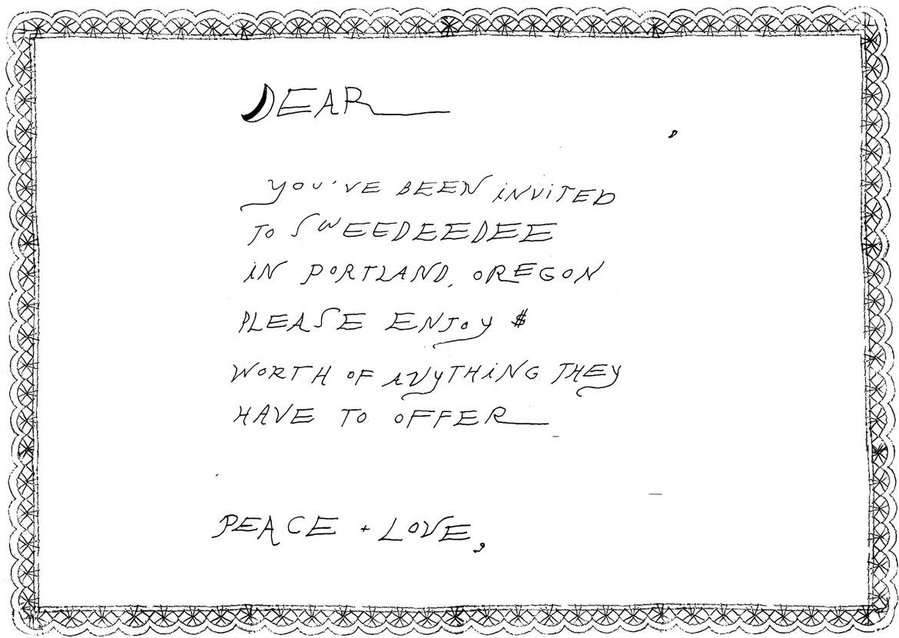 DEAR
YOU'VE BEEN INVITED
TO SWEEDEEDEE
IN PORTLAND, OREGON
PLEASE ENJOY $
WORTH OF ANYTHING THEY
HAVE TO OFFER
PEACE + LOVE,